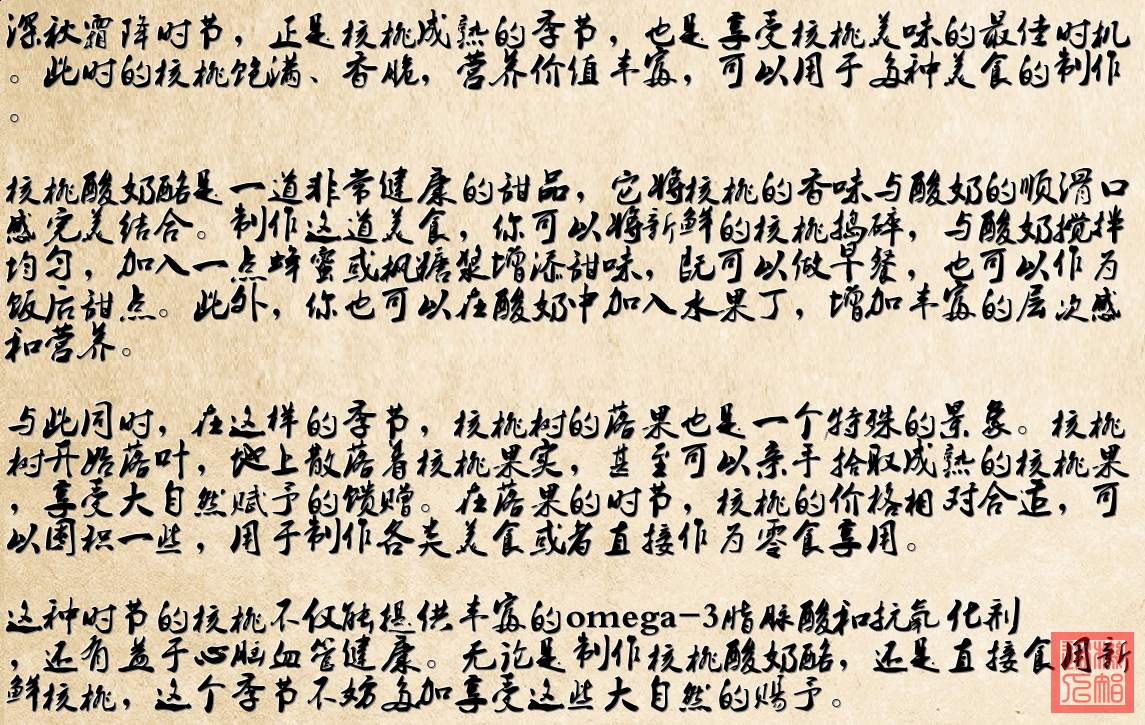 深秋霜降时节，正是核桃成熟的季节，也是享受核桃美味的最佳时机
。此时的核桃饱满、香脆，营养价值丰富，可以用于多种美食的制作
。
核桃酸奶酪是一道非常健康的甜品，它将核桃的香味与酸奶的顺滑口
感完美结合。制作这道美食，你可以将新鲜的核桃捣碎，与酸奶搅拌
均匀，加入一点蜂蜜或枫糖浆增添甜味，既可以做早餐，也可以作为
饭后甜点。此外，你也可以在酸奶中加入水果丁，增加丰富的层次感
和营养。
与此同时，在这样的季节，核桃树的落果也是一个特殊的景象。核桃
树开始落叶，地上散落着核桃果实，甚至可以亲手拾取成熟的核桃果
，享受大自然赋予的馈赠。在落果的时节，核桃的价格相对合适，可
以囤积一些，用于制作各类美食或者直接作为零食享用。
这种时节的核桃不仅能提供丰富的omega-3脂肪酸和抗氧化剂
，还有益于心脑血管健康。无论是制作核桃酸奶酪，还是直接食用新
鲜核桃，这个季节不妨多加享受这些大自然的赐予。